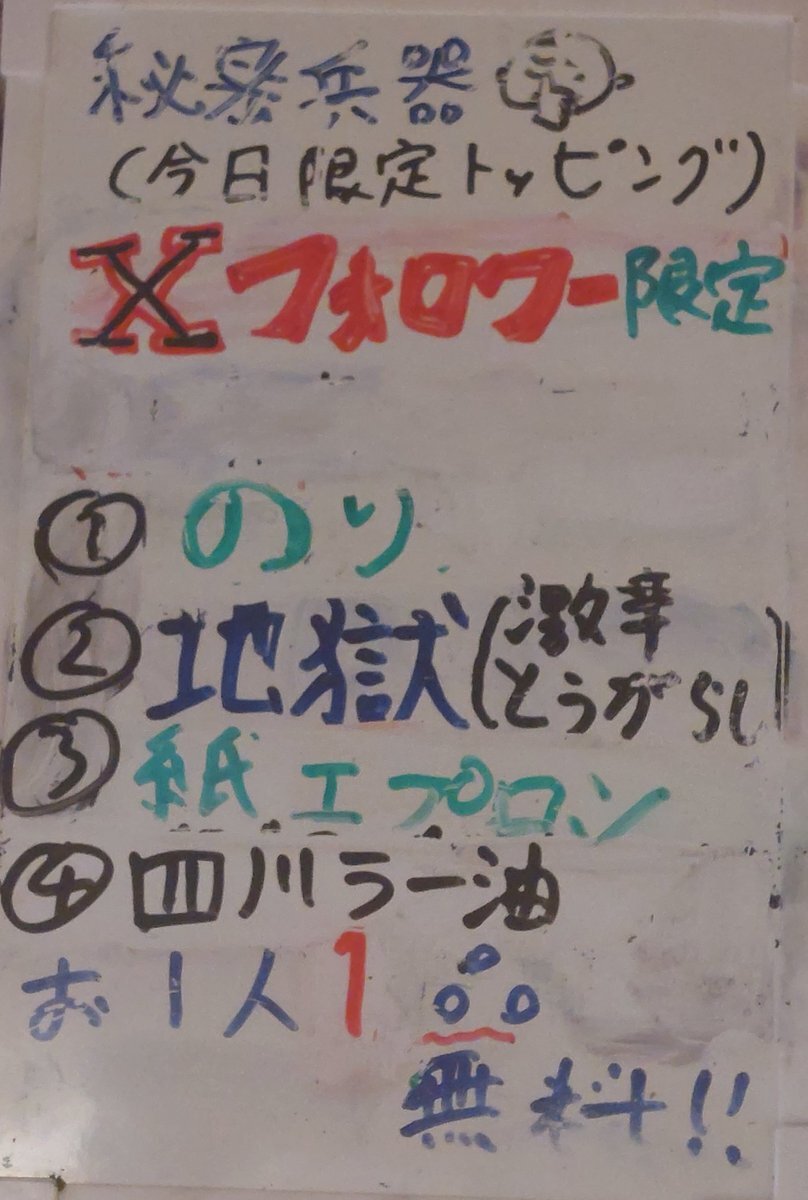 秘密兵器
(今日限定トッピング)
Xフォロワー限定
①のり
②地獄(激辛とうがらし)
③紙エプロン
④四川ラー油
お1人1品
無料!!